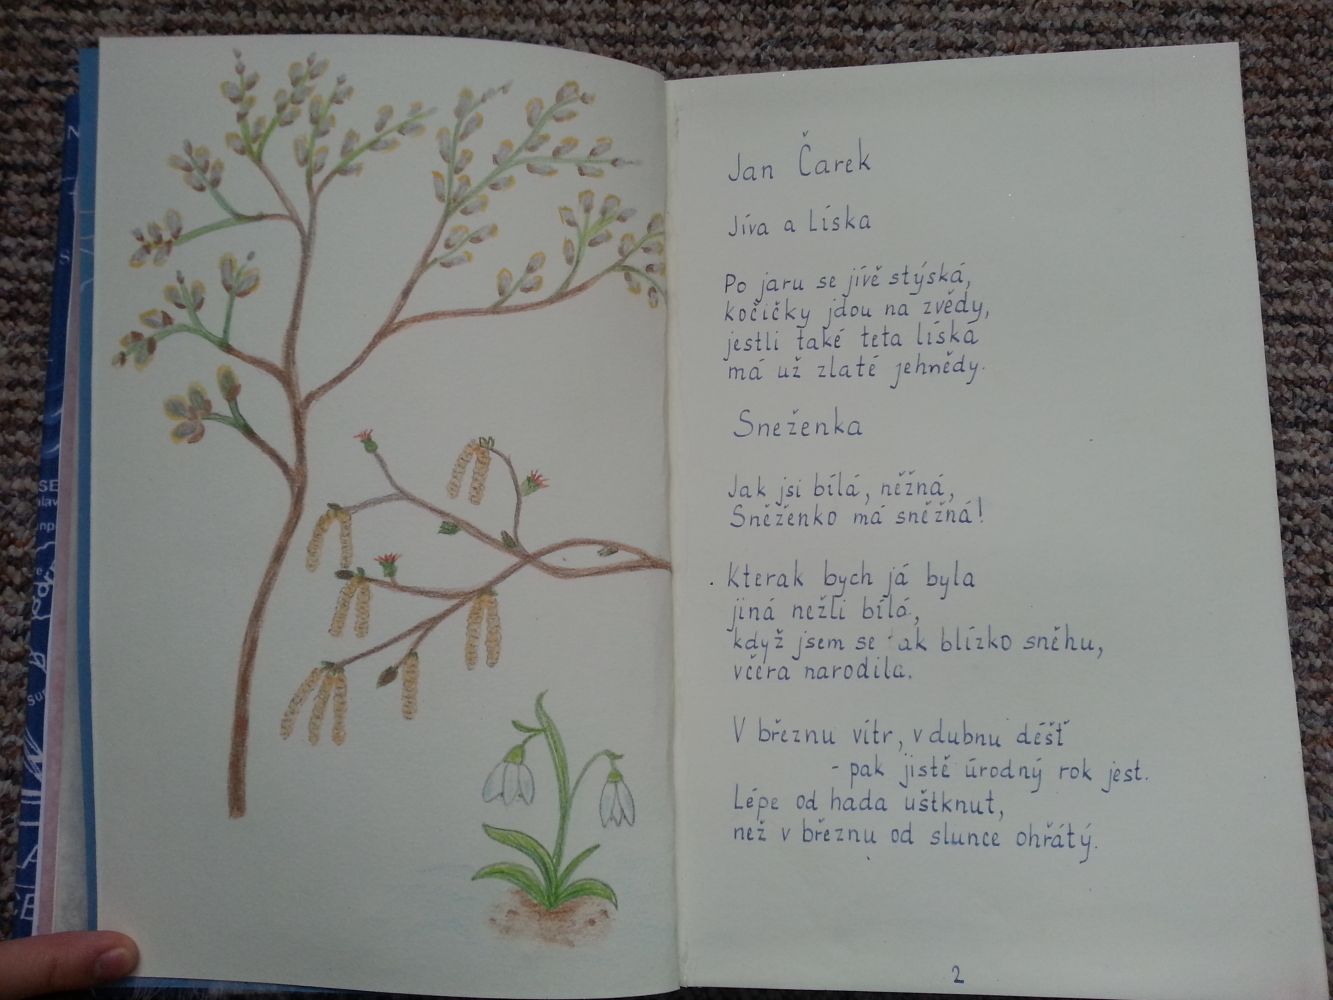 Jan Čarek
Jíva a Líska
Po jaru se jívě stýská,
kočičky jdou na zvědy,
jestli také teta líská
má už zlaté jehnědy.
Sneženka
Jak jsi bílá, něžná,
Sněženko má sněžná!
Kterak bych já byla
jiná nežli bílá,
když jsem se tak blízko sněhu,
včera narodila.
V březnu vítr, v dubnu déšť
- pak jistě úrodný rok jest.
Lépe od hada uštknut,
než v březnu od slunce ohřátý.
2